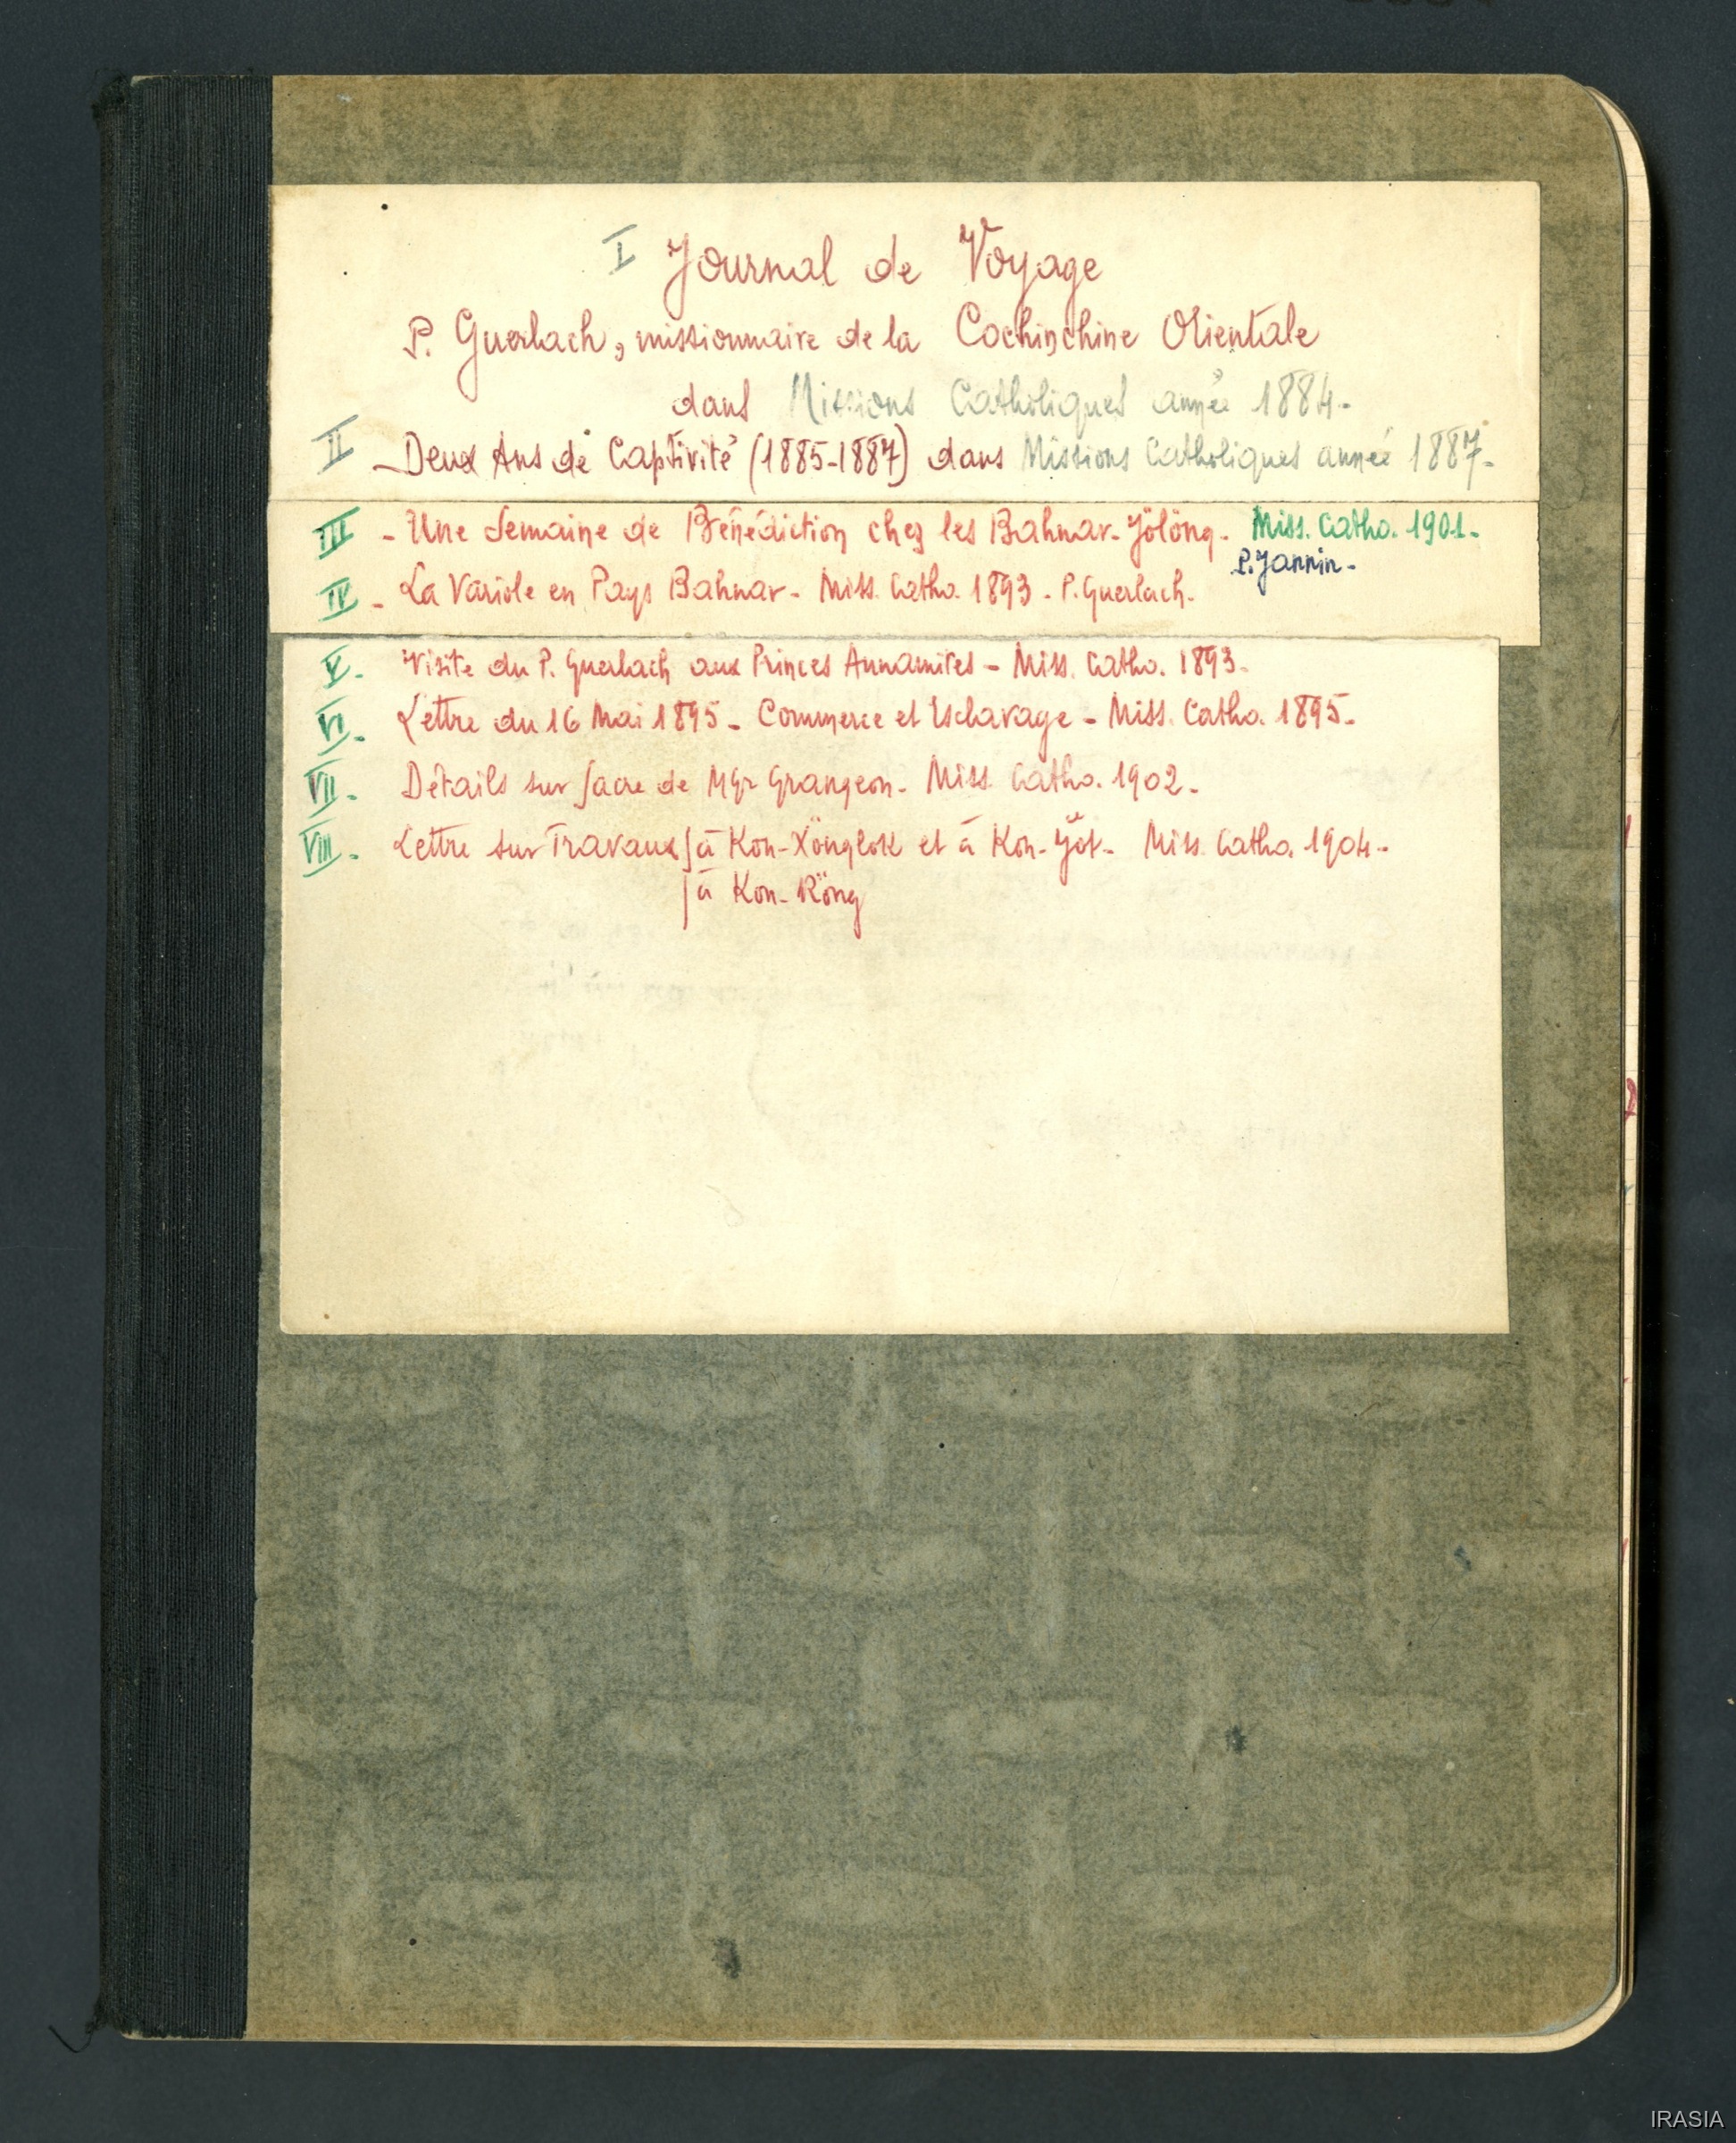 I Journal de Voyage
P. Guerlach, missionnaire de la Cochinchine Orientale
dans Missions Catholiques année 1884.
II - Deux Ans de Captivité (1885-1887) dans Missions Catholiques année 1887.
III - Une Semaine de Bénédiction chez les Bahnar-Jölöng. Miss. Catho. 1901.
P. Jannin.
IV - La Variole en Pays Bahnar - Miss. Catho. 1893 - P. Guerlach.
V. Visite du P. Guerlach aux Princes Annamites - Miss. Catho. 1893.
VI. Lettre du 16 Mai 1895 - Commerce et Esclavage - Miss. Catho. 1895.
VII. Détails sur Sacre de Mgr Grangeon. Miss. Catho. 1902.
VIII. Lettre sur Travaux à Kon-Xönglok et à Kon- Miss. Catho. 1904.
à Kon-Röng
IRASIA